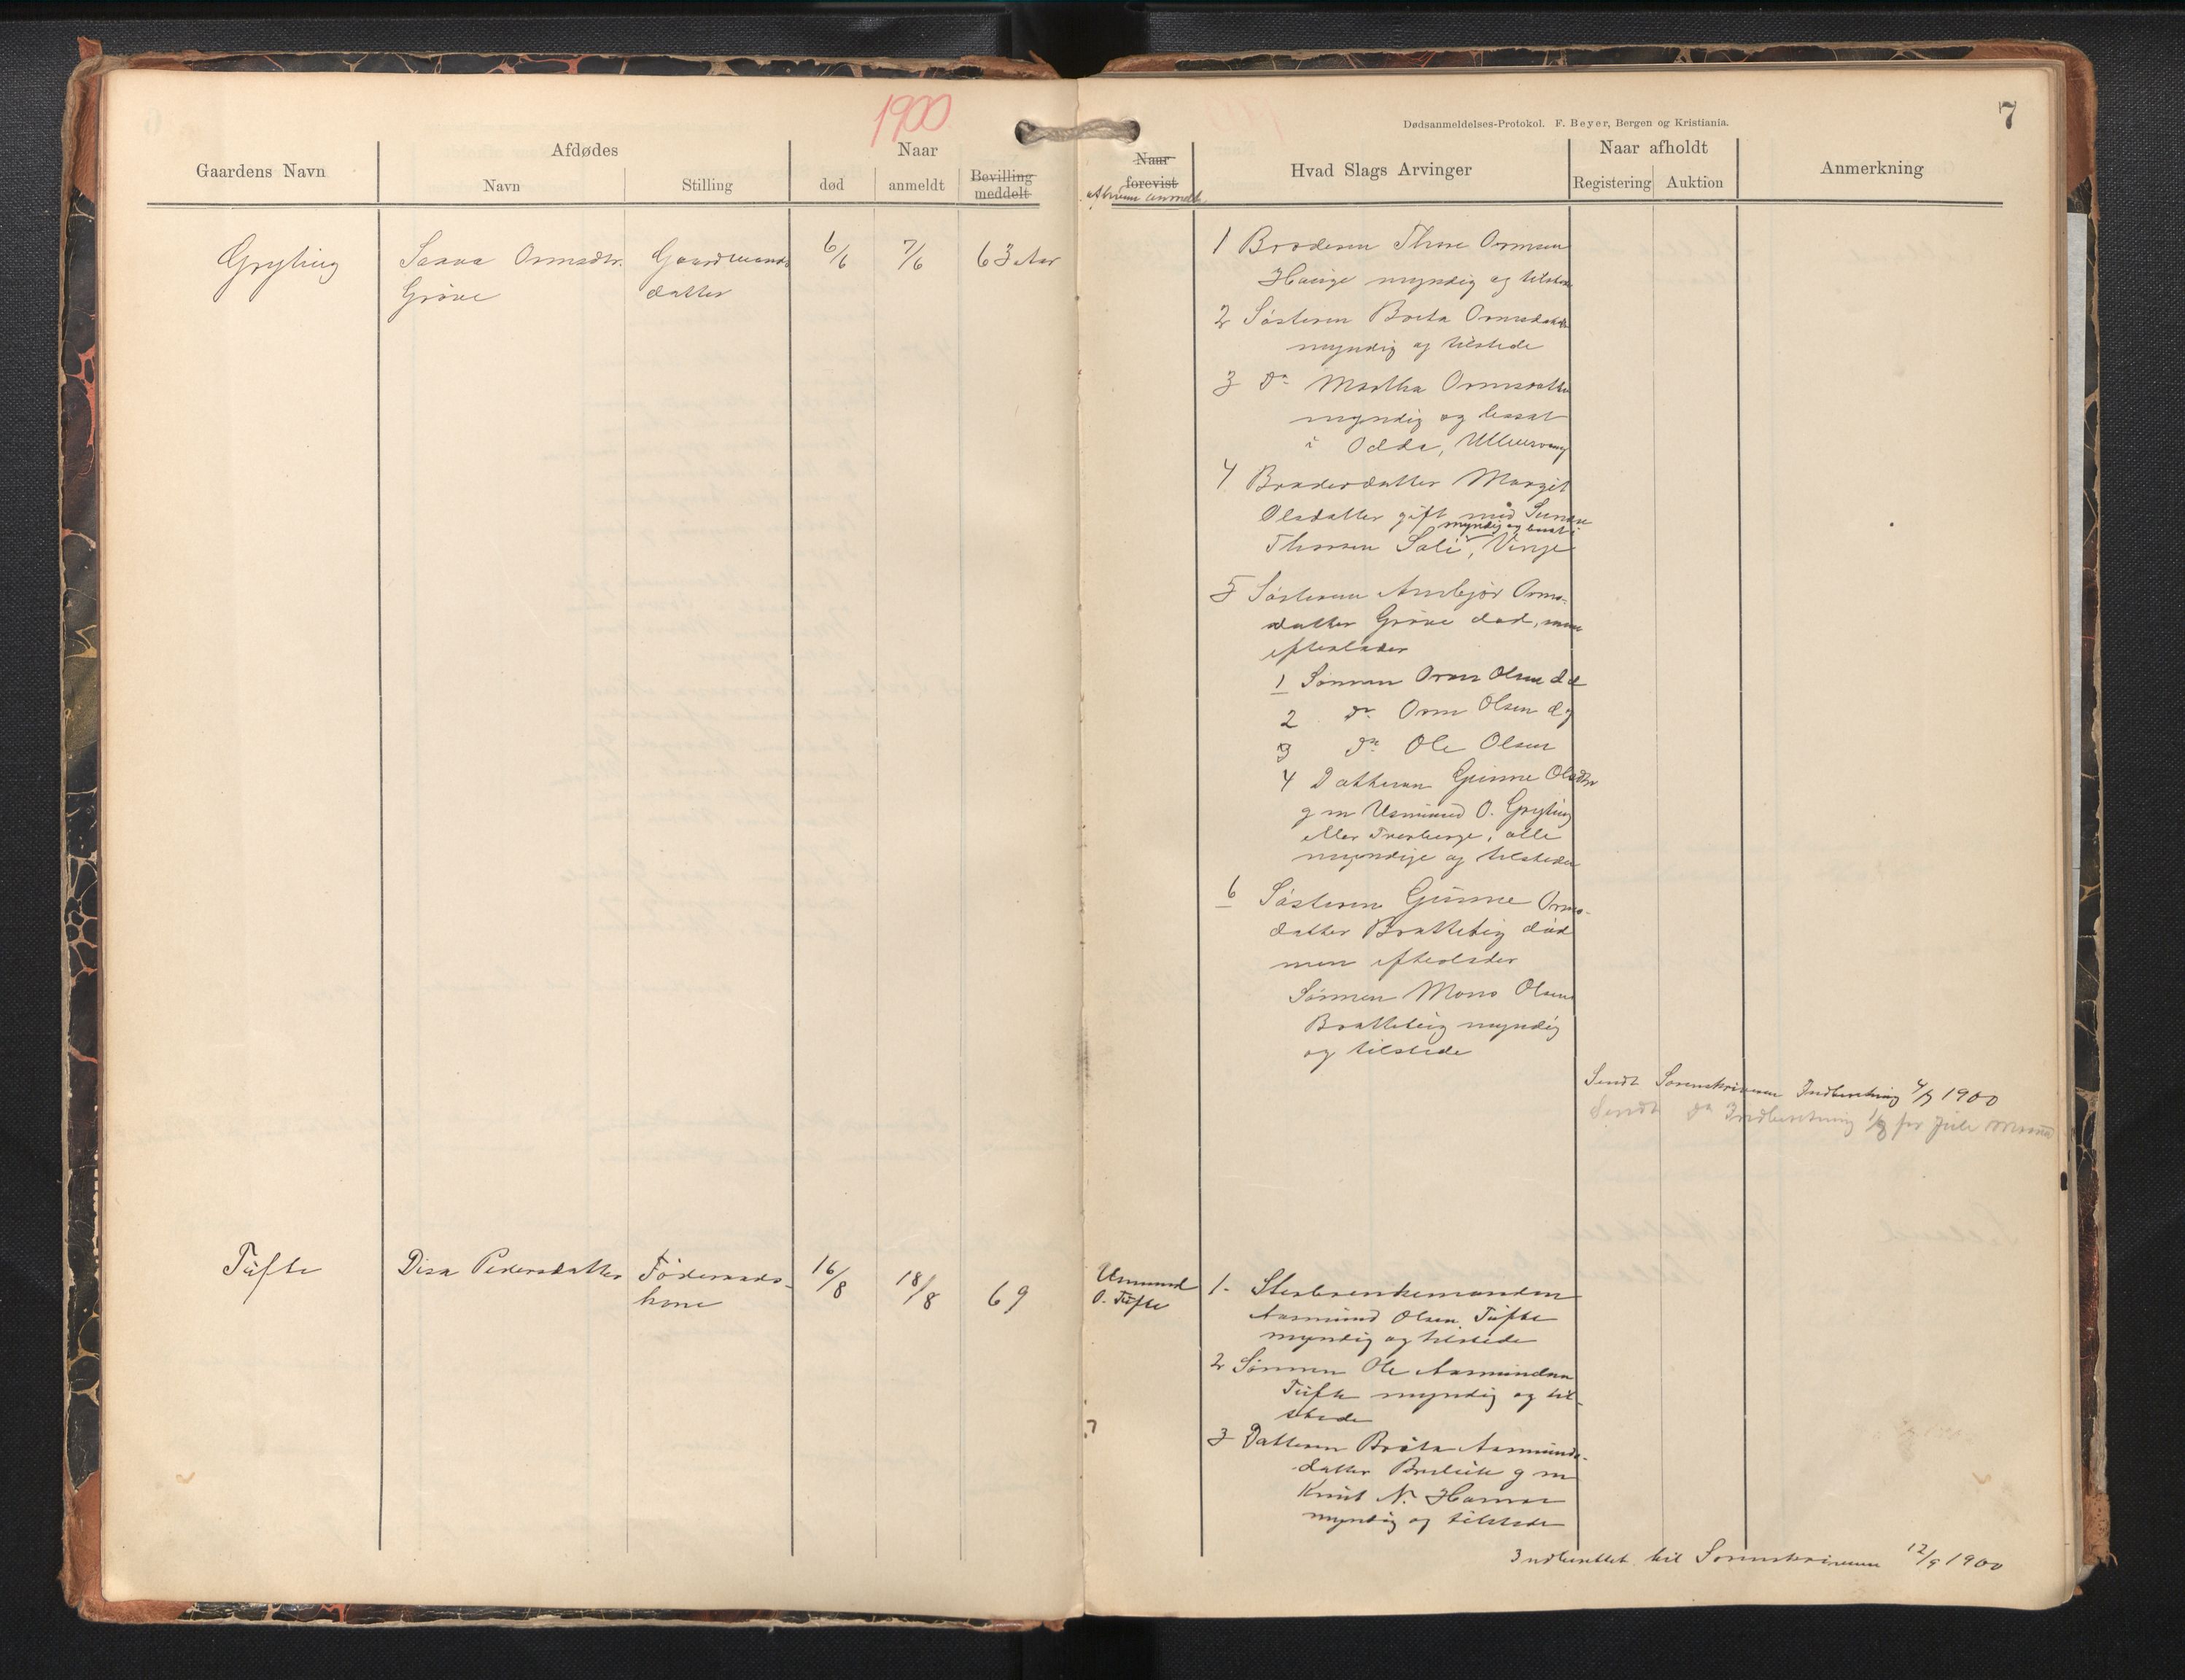 1900
7
Dødsanmeldelses-Protokol. F. Beyer, Bergen og Kristiania.
Gaardens Navn
Afdødes
Navn
Stilling
Naar
død
anmeldt
Bevilling
meddelt
Naar
forevist
af hvem anmeldt
Hvad Slags Arvinger
Naar afholdt
Registering
Auktion
Anmerkning
Gryting
Ormsdtr.
Grove
Gaardmands
datter
6/6
7/6
63 Aar
1 Broderen Thore Ormsen
Hauge myndig og tilstede
2 Søsteren Brita Ormsdatter
myndig og tilstede
3 Do Martha Ormsdatter
myndig og bosat
i Odda, Ullensvang
4 Broderdatter Margit
Olsdatter gift med
myndig og bosat i
Thorsen Vinje
5 Søsteren Ambjør Orms-
datter Grove død, men
efterlader
1 Sønnen Orm Olsen d e
2 do Orm Olsen d y
3 do Ole Olsen
4 Datteren Gunne Olsdtr
g m Usmund O. Gryting
eller alle
myndige og tilstede
6 Søsteren Gunne Orms-
datter Brattebig død
men efterlader
Sønnen Mons Olsen
Brattebig myndig
og tilstede
Sendt Sorenskriveren Indberetning 4/7 1900
Sendt do Indberetning 1/8 for Juli Maaned
Tufte
Disa Pedersdatter
Føderaads-
kone
16/8
18/8
69
Usmund
O. Tufte
1. Sterbeenkemanden
Aasmund Olsen Tufte
myndig og tilstede
2 Sønnen Ole Aasmundsen
Tufte myndig og til-
stede
3 Datteren Brita Aasmunds-
datter g m
Knut N. Hamar
myndig og tilstede
Indberettet til Sorenskriveren 12/9 1900